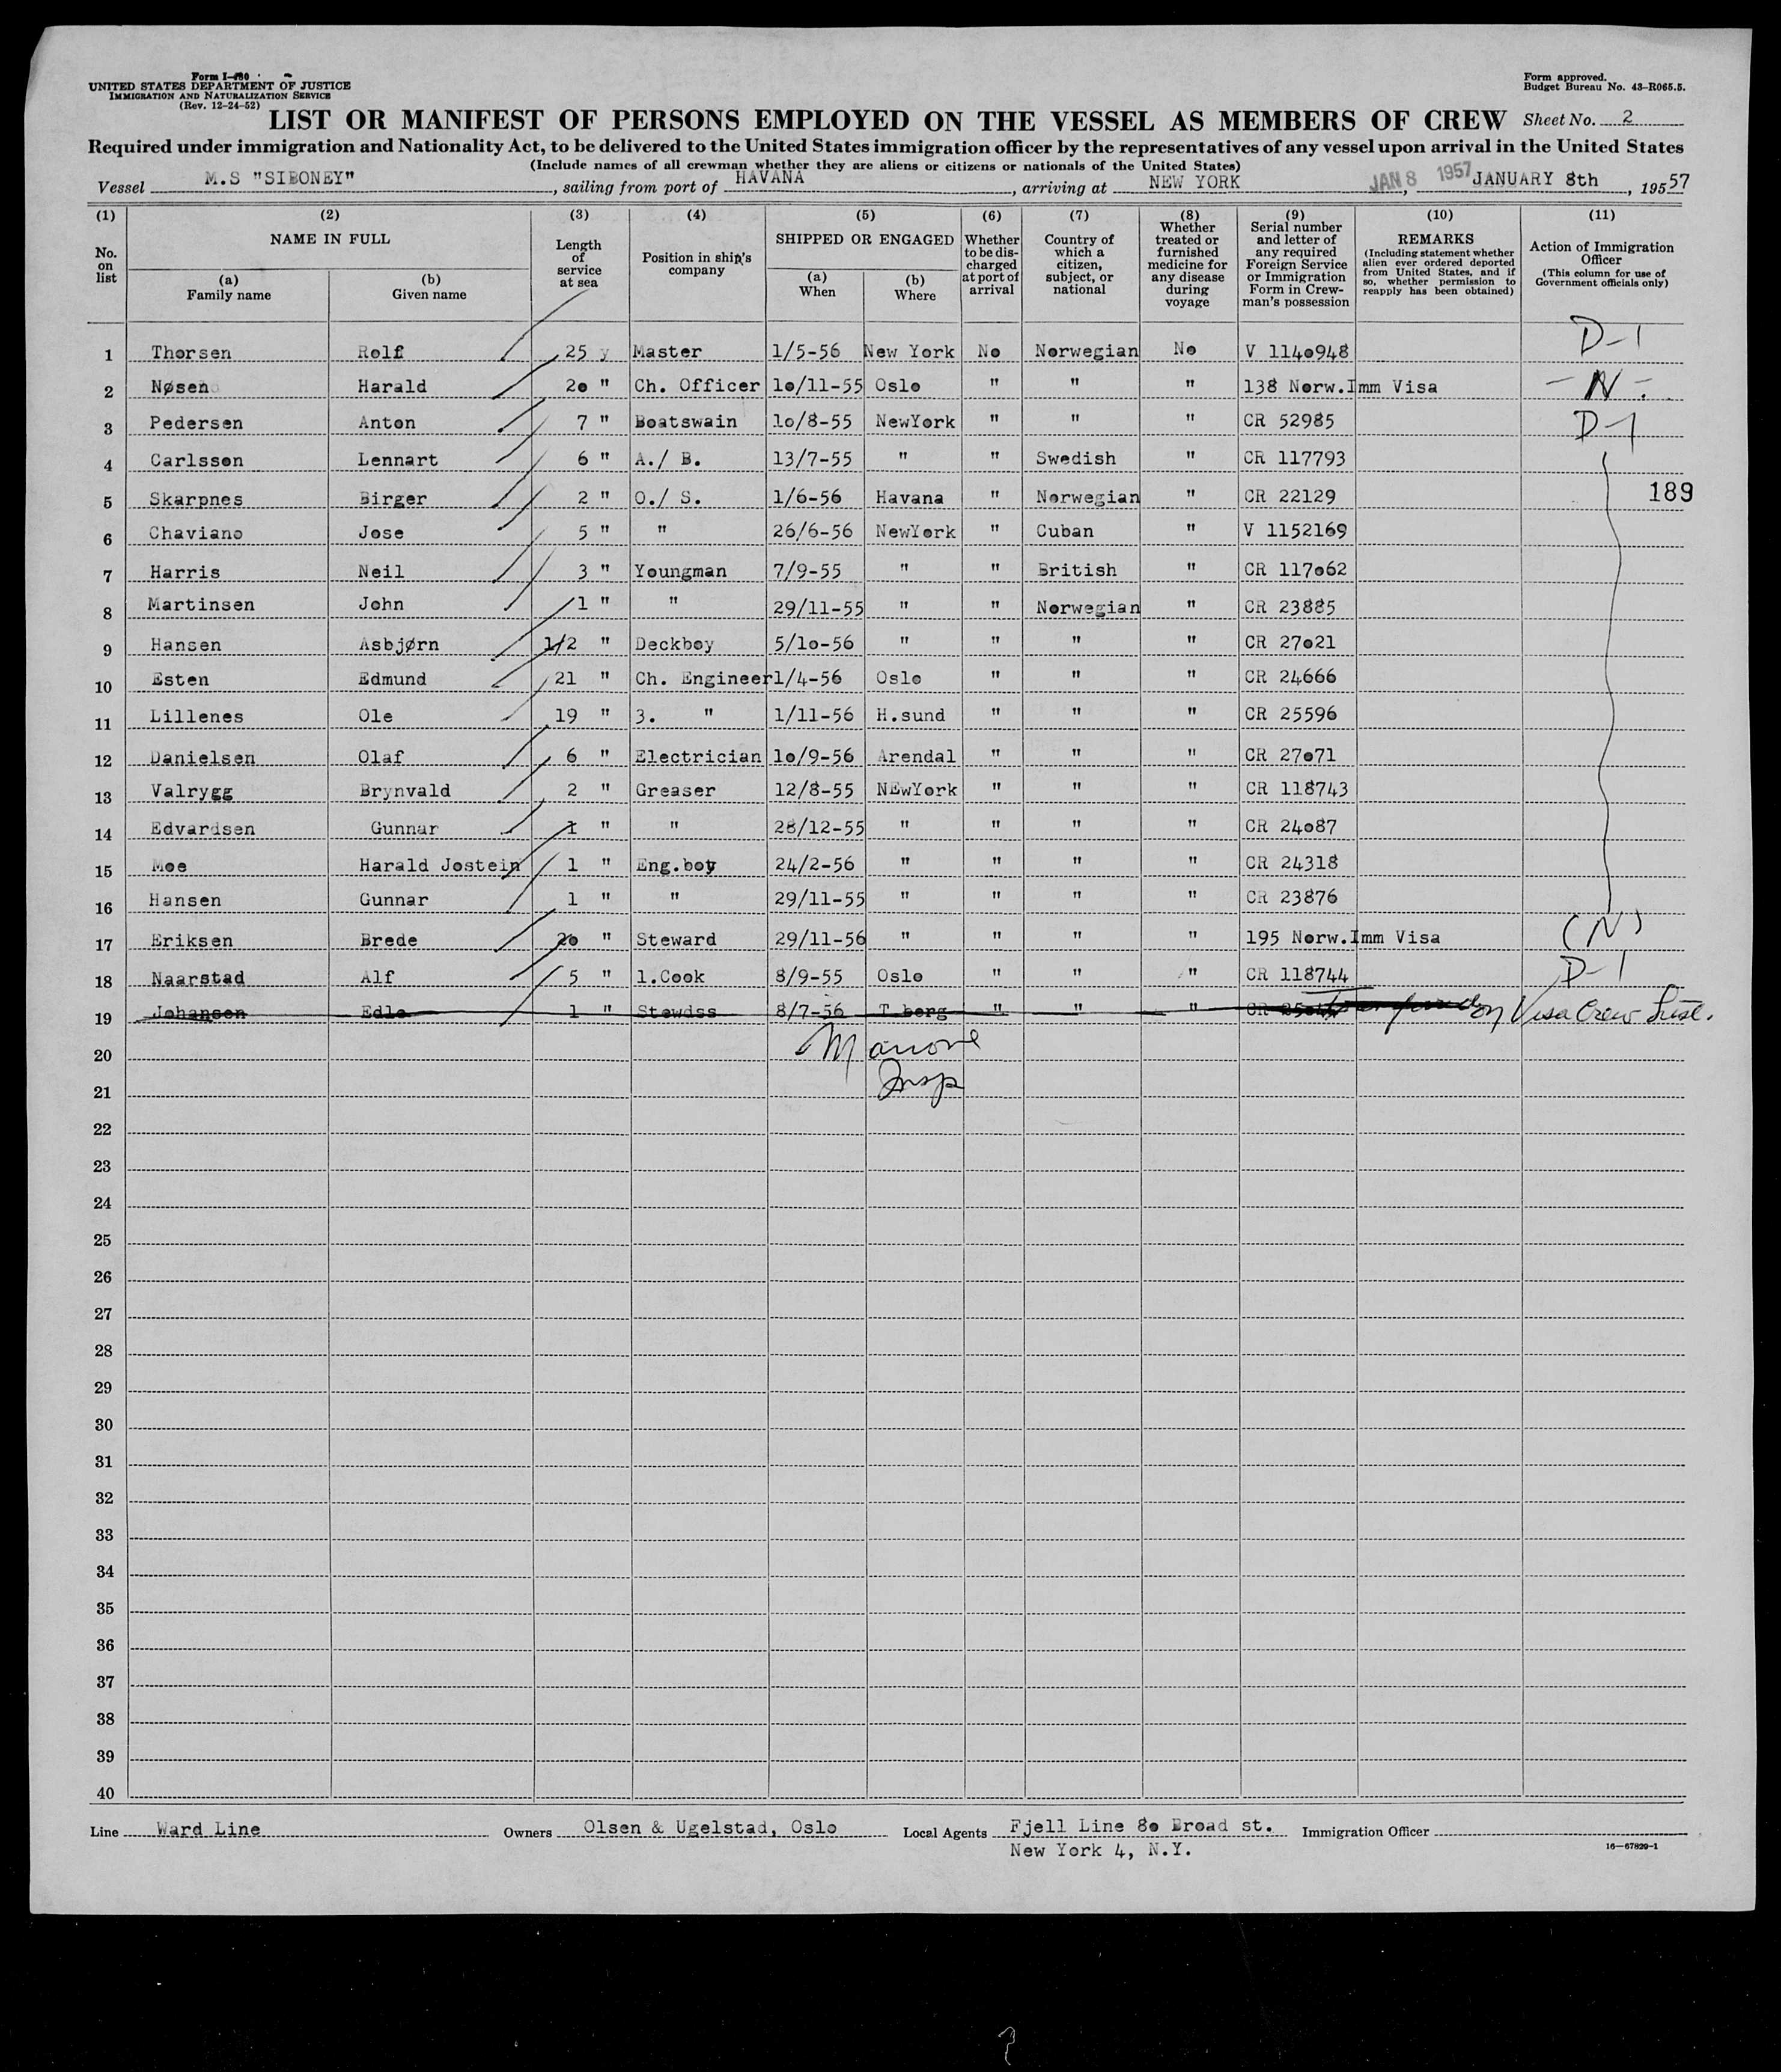 Form I-480
UNITED STATES DEPARTMENT OF JUSTICE
IMMIGRATION AND NATURALIZATION SERVICE
(Rev. 12-24-52)
Form approved.
Budget Bureau No. 43-R065.5.
LIST OR MANIFEST OF PERSONS EMPLOYED ON THE VESSEL AS MEMBERS OF CREW Sheet No. 2
Required under immigration and Nationality Act, to be delivered to the United States immigration officer by the representatives of any vessel upon arrival in the United States
(Include names of all crewman whether they are aliens or citizens or nationals of the United States)
Vessel M.S "SIBONEY", sailing from port of HAVANA, arriving at NEW YORK JAN 8 1957, JANUARY 8th, 19557
(1) No. on list
(2) NAME IN FULL
(a) Family name
(b) Given name
(3) Length of service at sea
(4) Position in ship's company
(5) SHIPPED OR ENGAGED
(a) When
(b) Where
(6) Whether to be discharged at port of arrival
(7) Country of which a citizen, subject, or national
(8) Whether treated or furnished medicine for any disease during voyage
(9) Serial number and letter of any required Foreign Service or Immigration Form in Crewman's possession
(10) REMARKS (Including statement whether alien ever ordered deported from United States, and if so, whether permission to reapply has been obtained)
(11) Action of Immigration Officer (This column for use of Government officials only)
1 Thorsen Rolf 25 y Master 1/5-56 New York No Norwegian No V 1140948 D-1
2 Nøsen Harald 20 " Ch. Officer 10/11-55 Oslo " " " 138 Norw.Imm Visa - N -
3 Pedersen Anton 7 " Boatswain 10/8-55 NewYork " " " CR 52985 D-1
4 Carlsson Lennart 6 " A./ B. 13/7-55 " " Swedish " CR 117793
5 Skarpnes Birger 2 " O./ S. 1/6-56 Havana " Norwegian " CR 22129 189
6 Chaviano Jose 5 " " 26/6-56 NewYork " Cuban " V 1152169
7 Harris Neil 3 " Youngman 7/9-55 " " British " CR 117062
8 Martinsen John 1 " " 29/11-55 " " Norwegian " CR 23885
9 Hansen Asbjørn 1/2 " Deckboy 5/10-56 " " " " CR 27021
10 Esten Edmund 21 " Ch. Engineer 1/4-56 Oslo " " " CR 24666
11 Lillenes Ole 19 " 3. " 1/11-56 H.sund " " " CR 25596
12 Danielsen Olaf 6 " Electrician 10/9-56 Arendal " " " CR 27071
13 Valrygg Brynvald 2 " Greaser 12/8-55 NEwYork " " " CR 118743
14 Edvardsen Gunnar 1 " " 28/12-55 " " " " CR 24087
15 Moe Harald Jostein 1 " Eng.boy 24/2-56 " " " " CR 24318
16 Hansen Gunnar 1 " " 29/11-55 " " " " CR 23876
17 Eriksen Brede 20 " Steward 29/11-56 " " " " 195 Norw.Imm Visa (N)
18 Naarstad Alf 5 " 1.Cook 8/9-55 Oslo " " " CR 118744 D-1
19 Johansen Edle 1 " Stewdss 8/7-56 T.berg " " " CR on Visa Crew List.
20 Manone
21 Insp
22
23
24
25
26
27
28
29
30
31
32
33
34
35
36
37
38
39
40
Line Ward Line Owners Olsen & Ugelstad, Oslo Local Agents Fjell Line 80 Broad st. Immigration Officer
New York 4, N.Y.
16—67829-1